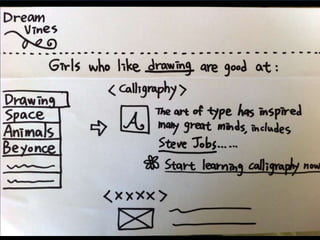 Dream
Vines
Girls who like drawing are good at:
Drawing
Space
Animals
Beyonce
< Calligraphy >
A.
The art of type has inspired
many great minds, includes
Steve Jobs......
Start learning calligraphy now
< x x x x >